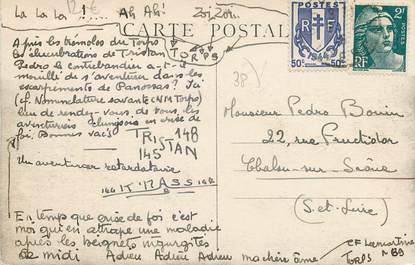 La La La !... Ah Ah! Zoizon.
CARTE POSTALE
Après les trémolos du Torpo
les élucubrations de Tristan
TORPS
Pedro le entrebandier a-t-il
mouillé de s'aventurer dans les
escarpements de Panossas? Ici
(cf. Nomenclature savante Torpo)
lieu de rendez-vous, de vous, les
aventuriers clunysois en crise de
foi. Bonnes vac's
TRISTAN
148
145
Un aventurier retardataire
En temps que crise de foi c'est
moi qui en attrape une maladie
après les beignets ingurgités
ce midi Adieu Adieu Adieu ma chère âme
cf Lamartine
TORPS N°89
38
Monsieur Pedro Bouin
22, rue Fructidor
Chalon-sur-Saône
(S.-et-Loire)
POSTES
RF
50c 50c
1944
POSTES
2F
RF